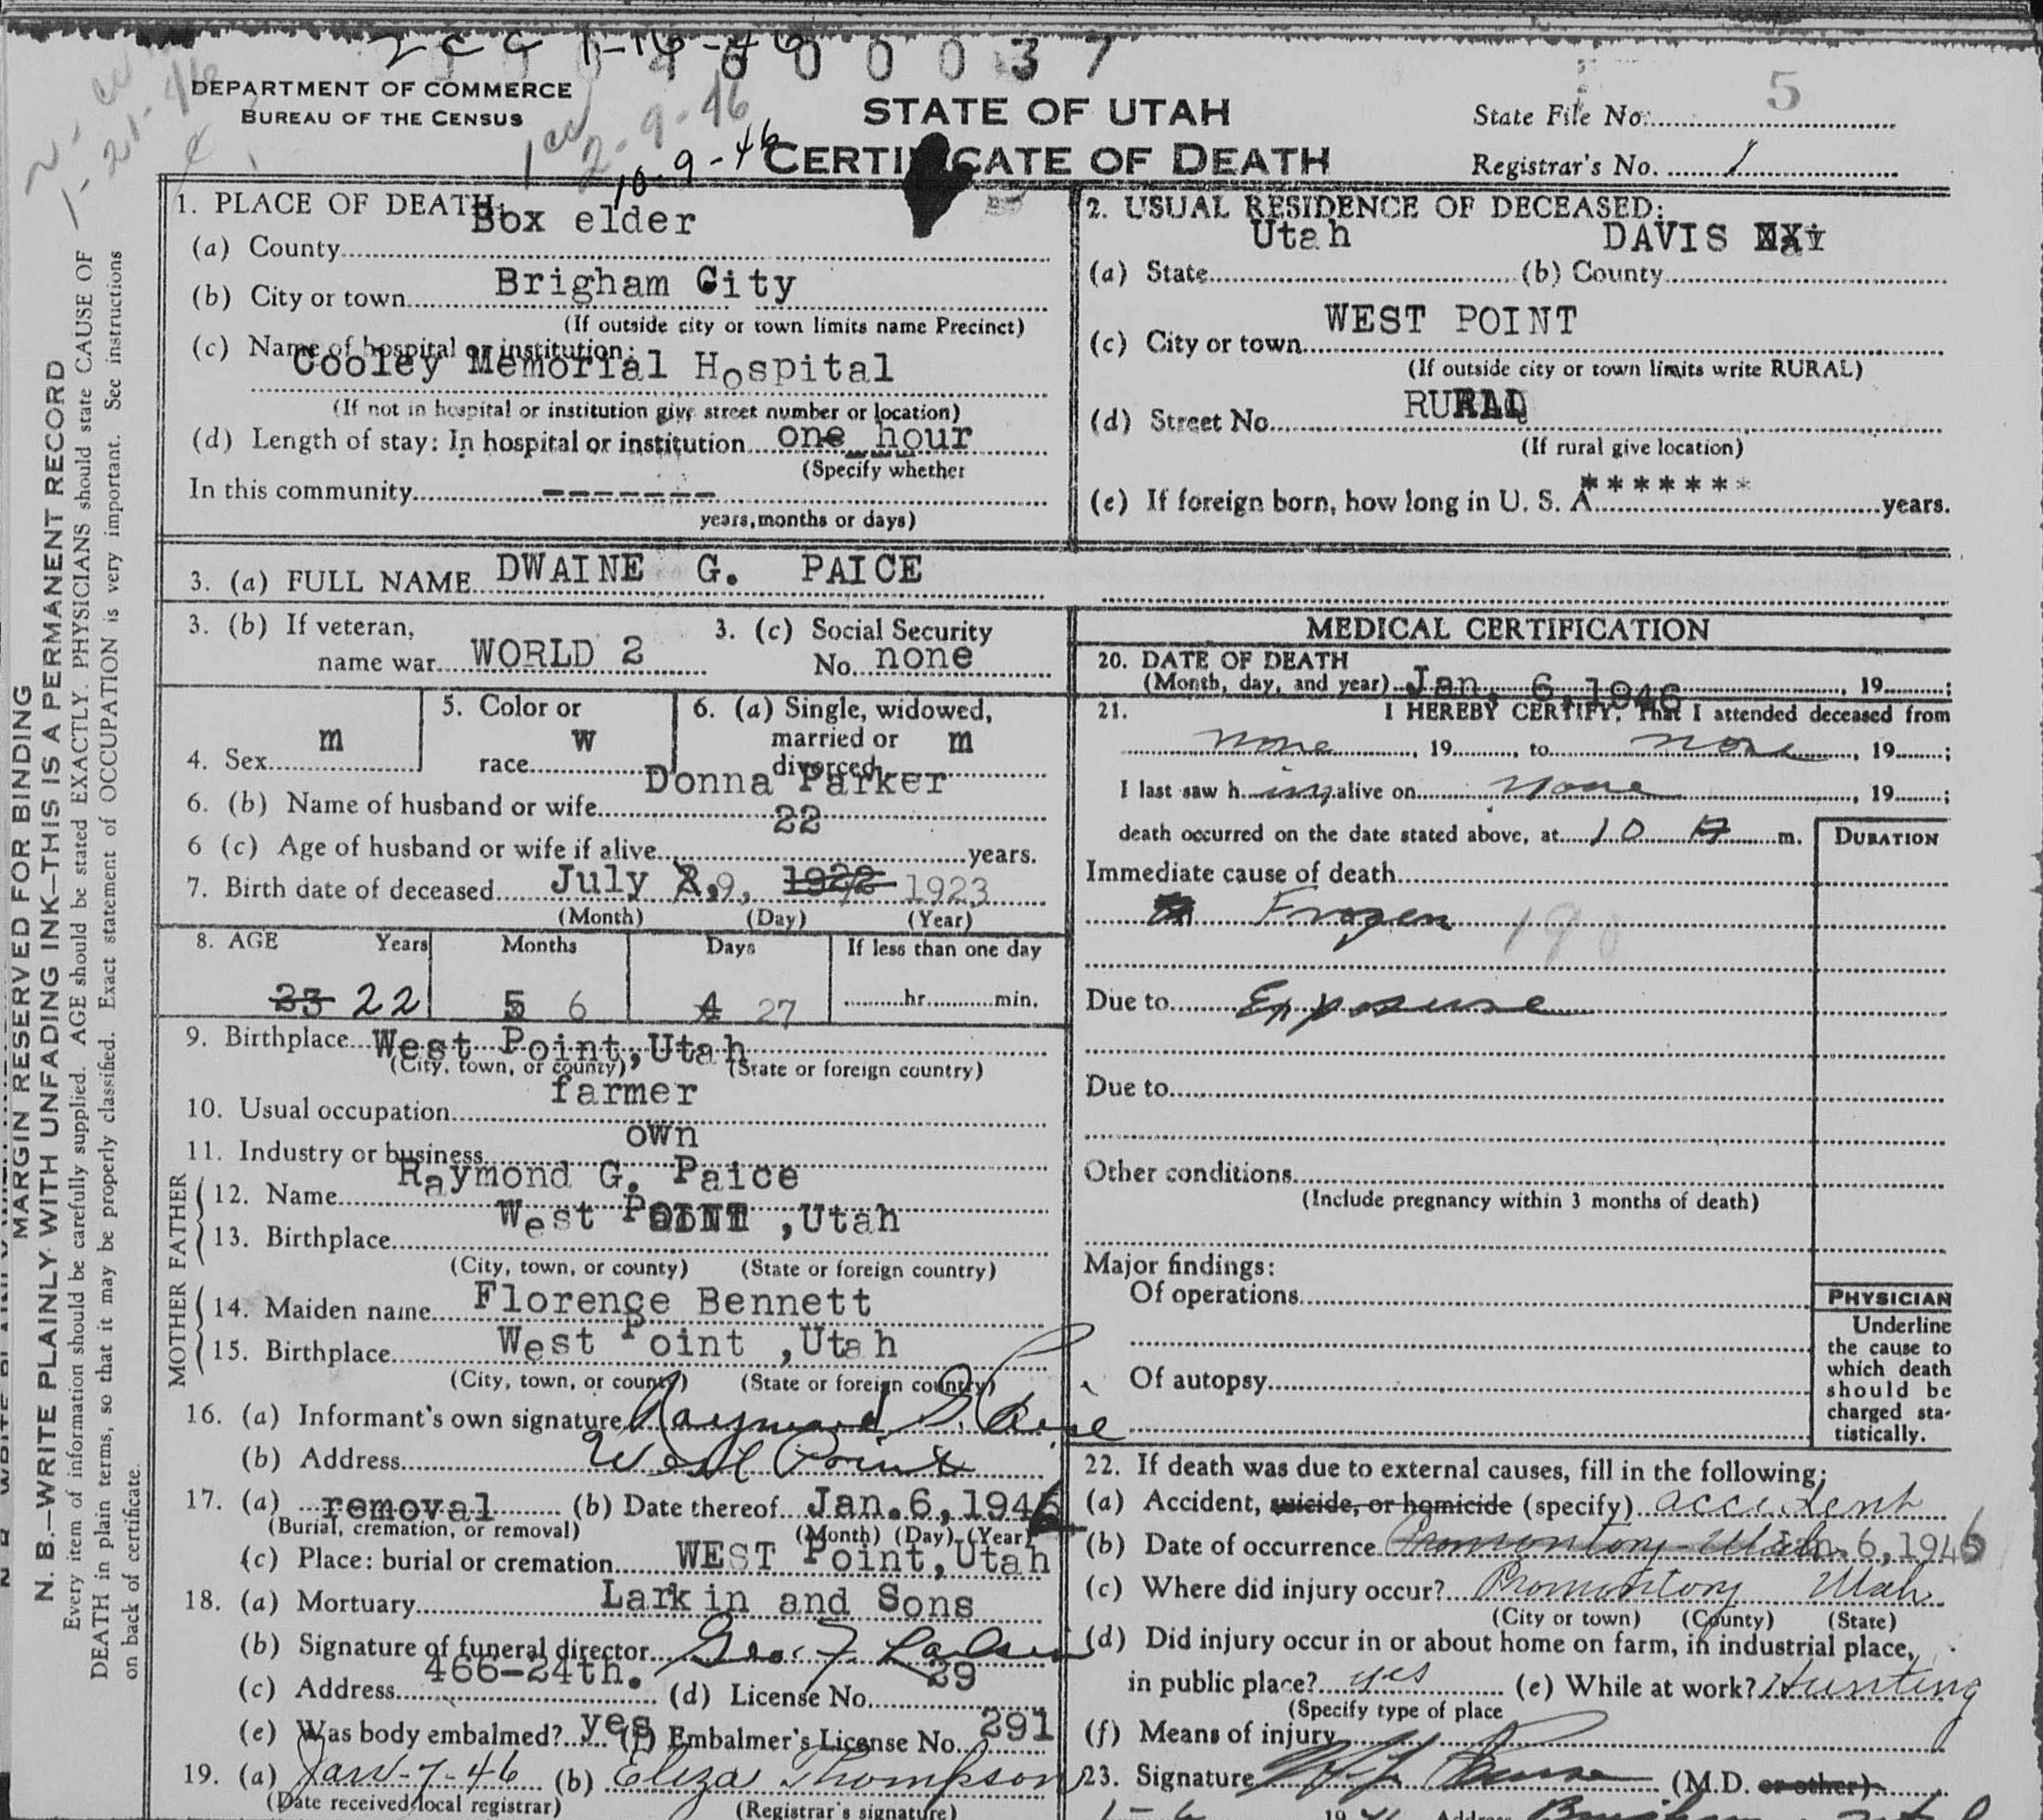 2 cc 1-16-46
600037
2- cc
1-21-46
1 cc 2-9-46
10-9-46
DEPARTMENT OF COMMERCE
BUREAU OF THE CENSUS
STATE OF UTAH
CERTIFICATE OF DEATH
State File No. 5
Registrar's No. 1
MARGIN RESERVED FOR BINDING
N. B.—WRITE PLAINLY WITH UNFADING INK—THIS IS A PERMANENT RECORD
Every item of information should be carefully supplied. AGE should be stated EXACTLY. PHYSICIANS should state CAUSE OF
DEATH in plain terms, so that it may be properly classified. Exact statement of OCCUPATION is very important. See instructions
on back of certificate.
1. PLACE OF DEATH:
(a) County Box elder
(b) City or town Brigham City
(If outside city or town limits name Precinct)
(c) Name of hospital or institution:
Cooley Memorial Hospital
(If not in hospital or institution give street number or location)
(d) Length of stay: In hospital or institution one hour
(Specify whether
In this community -------
years, months or days)
2. USUAL RESIDENCE OF DECEASED:
(a) State Utah (b) County DAVIS
(c) City or town WEST POINT
(If outside city or town limits write RURAL)
(d) Street No. RURAL
(If rural give location)
(e) If foreign born, how long in U. S. A. ******* years.
3. (a) FULL NAME DWAINE G. PAICE
3. (b) If veteran,
name war WORLD 2
3. (c) Social Security
No. none
4. Sex m
5. Color or
race w
6. (a) Single, widowed,
married or
divorced m
6. (b) Name of husband or wife Donna Parker
6 (c) Age of husband or wife if alive 22 years.
7. Birth date of deceased July 2, 9, 1922 1923
(Month) (Day) (Year)
8. AGE Years Months Days If less than one day
23 22 5 6 4 27 hr. min.
9. Birthplace West Point, Utah
(City, town, or county) (State or foreign country)
10. Usual occupation farmer
11. Industry or business own
FATHER
12. Name Raymond G. Paice
13. Birthplace West POINT ,Utah
(City, town, or county) (State or foreign country)
MOTHER
14. Maiden name Florence Bennett
15. Birthplace West Point ,Utah
(City, town, or county) (State or foreign country)
16. (a) Informant's own signature Raymond G. Paice
(b) Address West Point
17. (a) removal (b) Date thereof Jan.6,1946
(Burial, cremation, or removal) (Month) (Day) (Year)
(c) Place: burial or cremation WEST Point,Utah
18. (a) Mortuary Larkin and Sons
(b) Signature of funeral director Geo. F Larkin
(c) Address 466-24th. (d) License No. 29
(e) Was body embalmed? yes (f) Embalmer's License No. 291
19. (a) Jan-7-46 (b) Eliza Thompson
(Date received local registrar) (Registrar's signature)
MEDICAL CERTIFICATION
20. DATE OF DEATH
(Month, day, and year) Jan. 6,1946, 19 ;
21. I HEREBY CERTIFY, That I attended deceased from
none, 19 , to none, 19 ;
I last saw h im alive on none, 19 ;
death occurred on the date stated above, at 10 A m.
DURATION
Immediate cause of death
Frozen
Due to Exposure
Due to
Other conditions
(Include pregnancy within 3 months of death)
Major findings:
Of operations
Of autopsy
PHYSICIAN
Underline
the cause to
which death
should be
charged sta-
tistically.
22. If death was due to external causes, fill in the following:
(a) Accident, suicide, or homicide (specify) accident
(b) Date of occurrence Promontory Utah Jan. 6, 1946
(c) Where did injury occur? Promontory Utah
(City or town) (County) (State)
(d) Did injury occur in or about home on farm, in industrial place,
in public place? yes (e) While at work? Hunting
(Specify type of place
(f) Means of injury
23. Signature (M.D. or other)